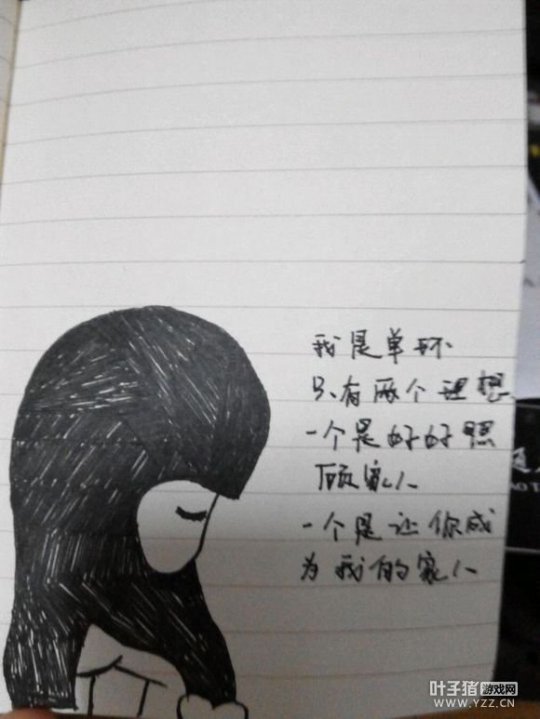 我是单环
只有两个理想
一个是好好照
顾家人
一个是让你成
为我的家人
叶子猪游戏网
WWW.YZZ.CN